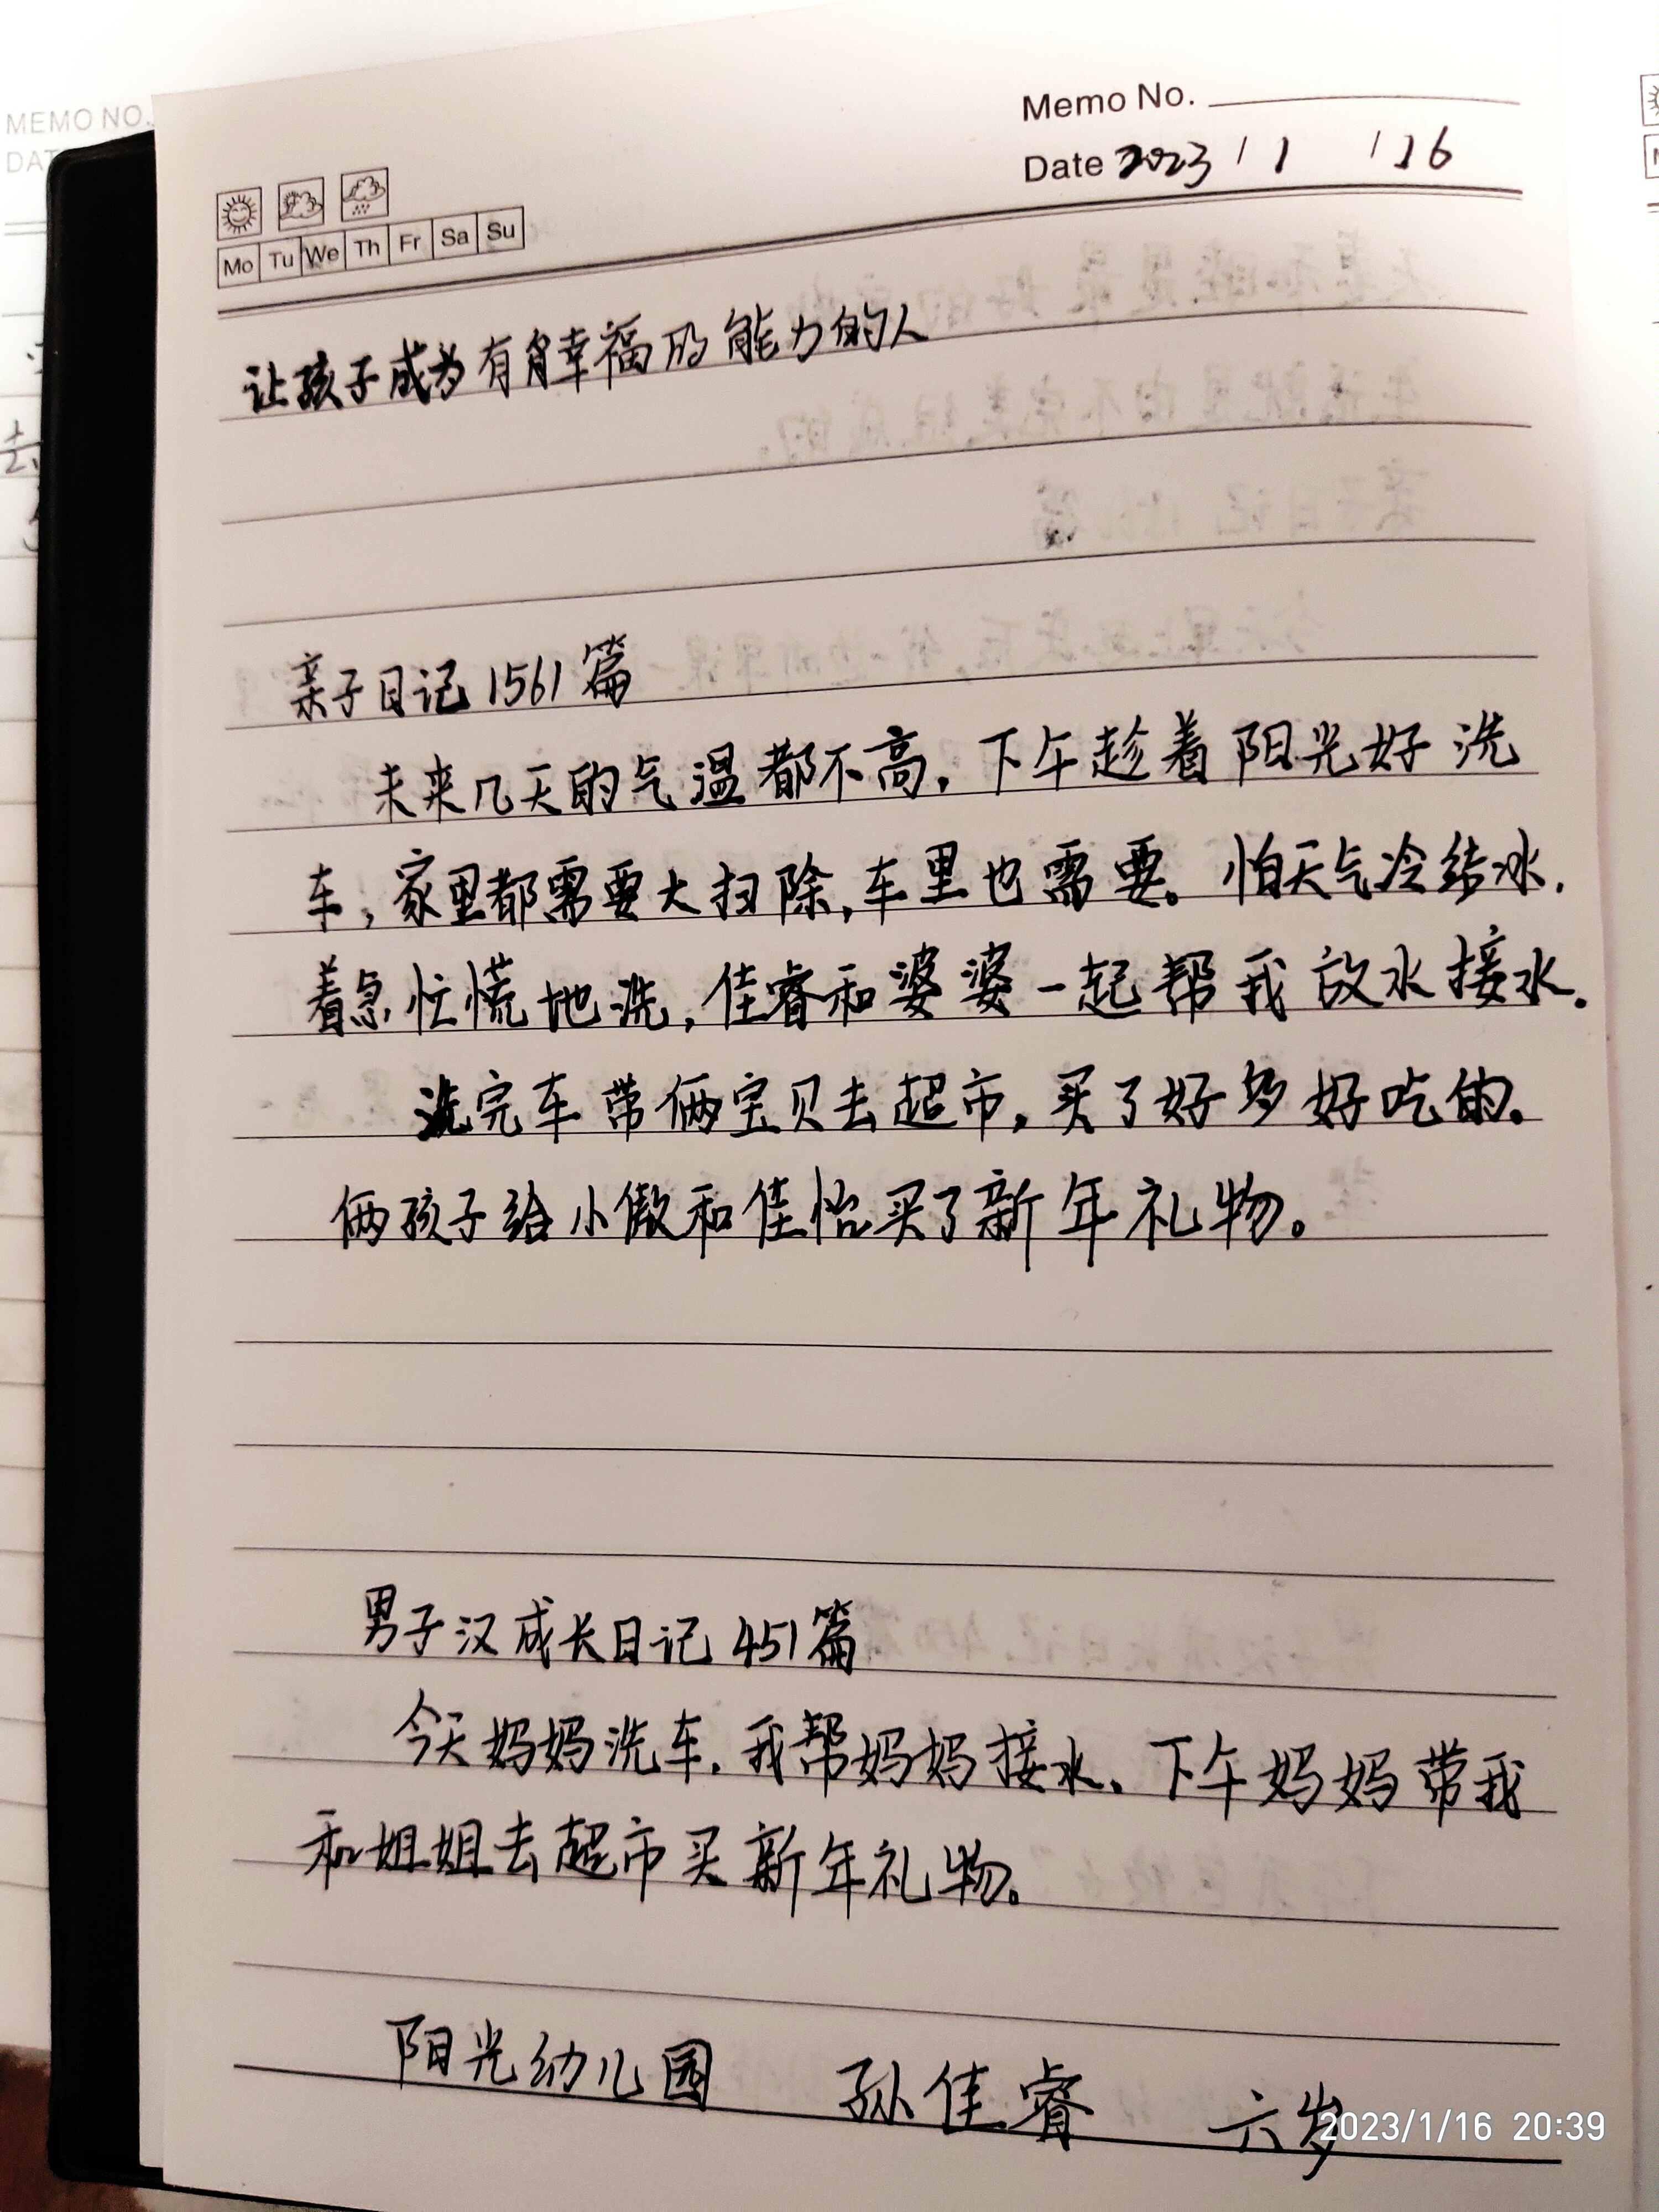 MEMO NO.
Memo No.
Date 2023 / 1 / 16
Mo Tu We Th Fr Sa Su
让孩子成为有幸福的能力的人
亲子日记 1561篇
未来几天的气温都不高，下午趁着阳光好洗
车，家里都需要大扫除，车里也需要。怕天气冷结冰，
着急忙慌地洗，佳睿和婆婆一起帮我放水接水。
洗完车带俩宝贝去超市，买了好多好吃的。
俩孩子给小傲和佳怡买了新年礼物。
男子汉成长日记 451篇
今天妈妈洗车，我帮妈妈接水。下午妈妈带我
和姐姐去超市买新年礼物。
阳光幼儿园 孙佳睿 六岁
2023/1/16 20:39